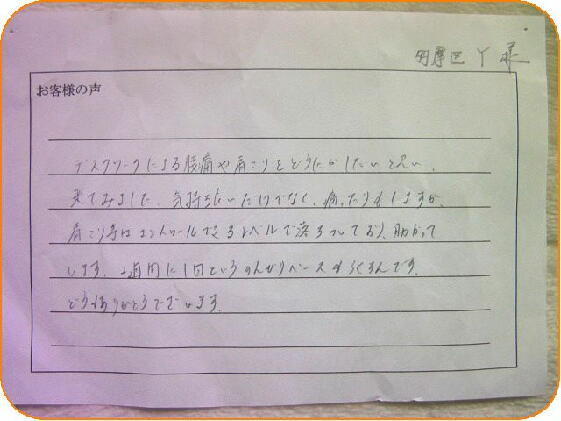 区 Y 様
お客様の声
デスクワークによる腰痛や肩こりをどうにかしたいと思い、
来てみました。気持ちいいだけでなく、痛かったりもしますが、
肩こり等はコントロールできるレベルで落ちついており、助かって
します。2週間に1回というのんびりペースも
どうもありがとうございます。